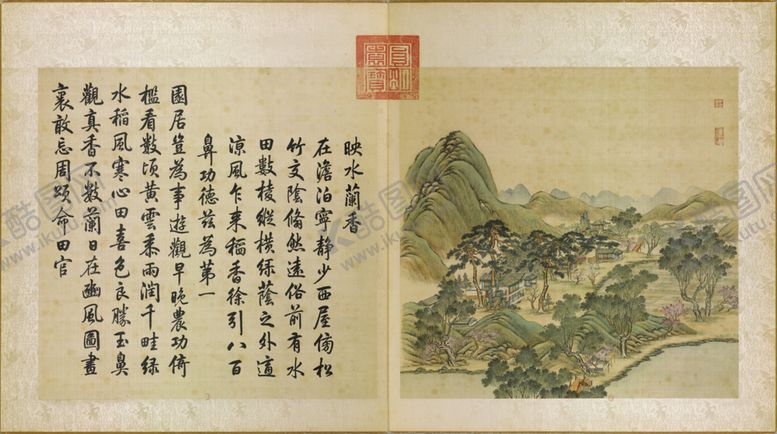 映水蘭香
在澹泊寧靜少西屋傍松
竹交陰翛然遠俗前有水
田數棱縱橫綠蔭之外適
涼風乍來稻香徐引八百
鼻功德茲為第一
園居豈為事遊觀早晚農功倚
檻看數頃黃雲黍雨潤千畦綠
水稻風寒心田喜色良勝玉鼻
觀真香不數蘭日在豳風圖畫
裏敢忘周頌命田官